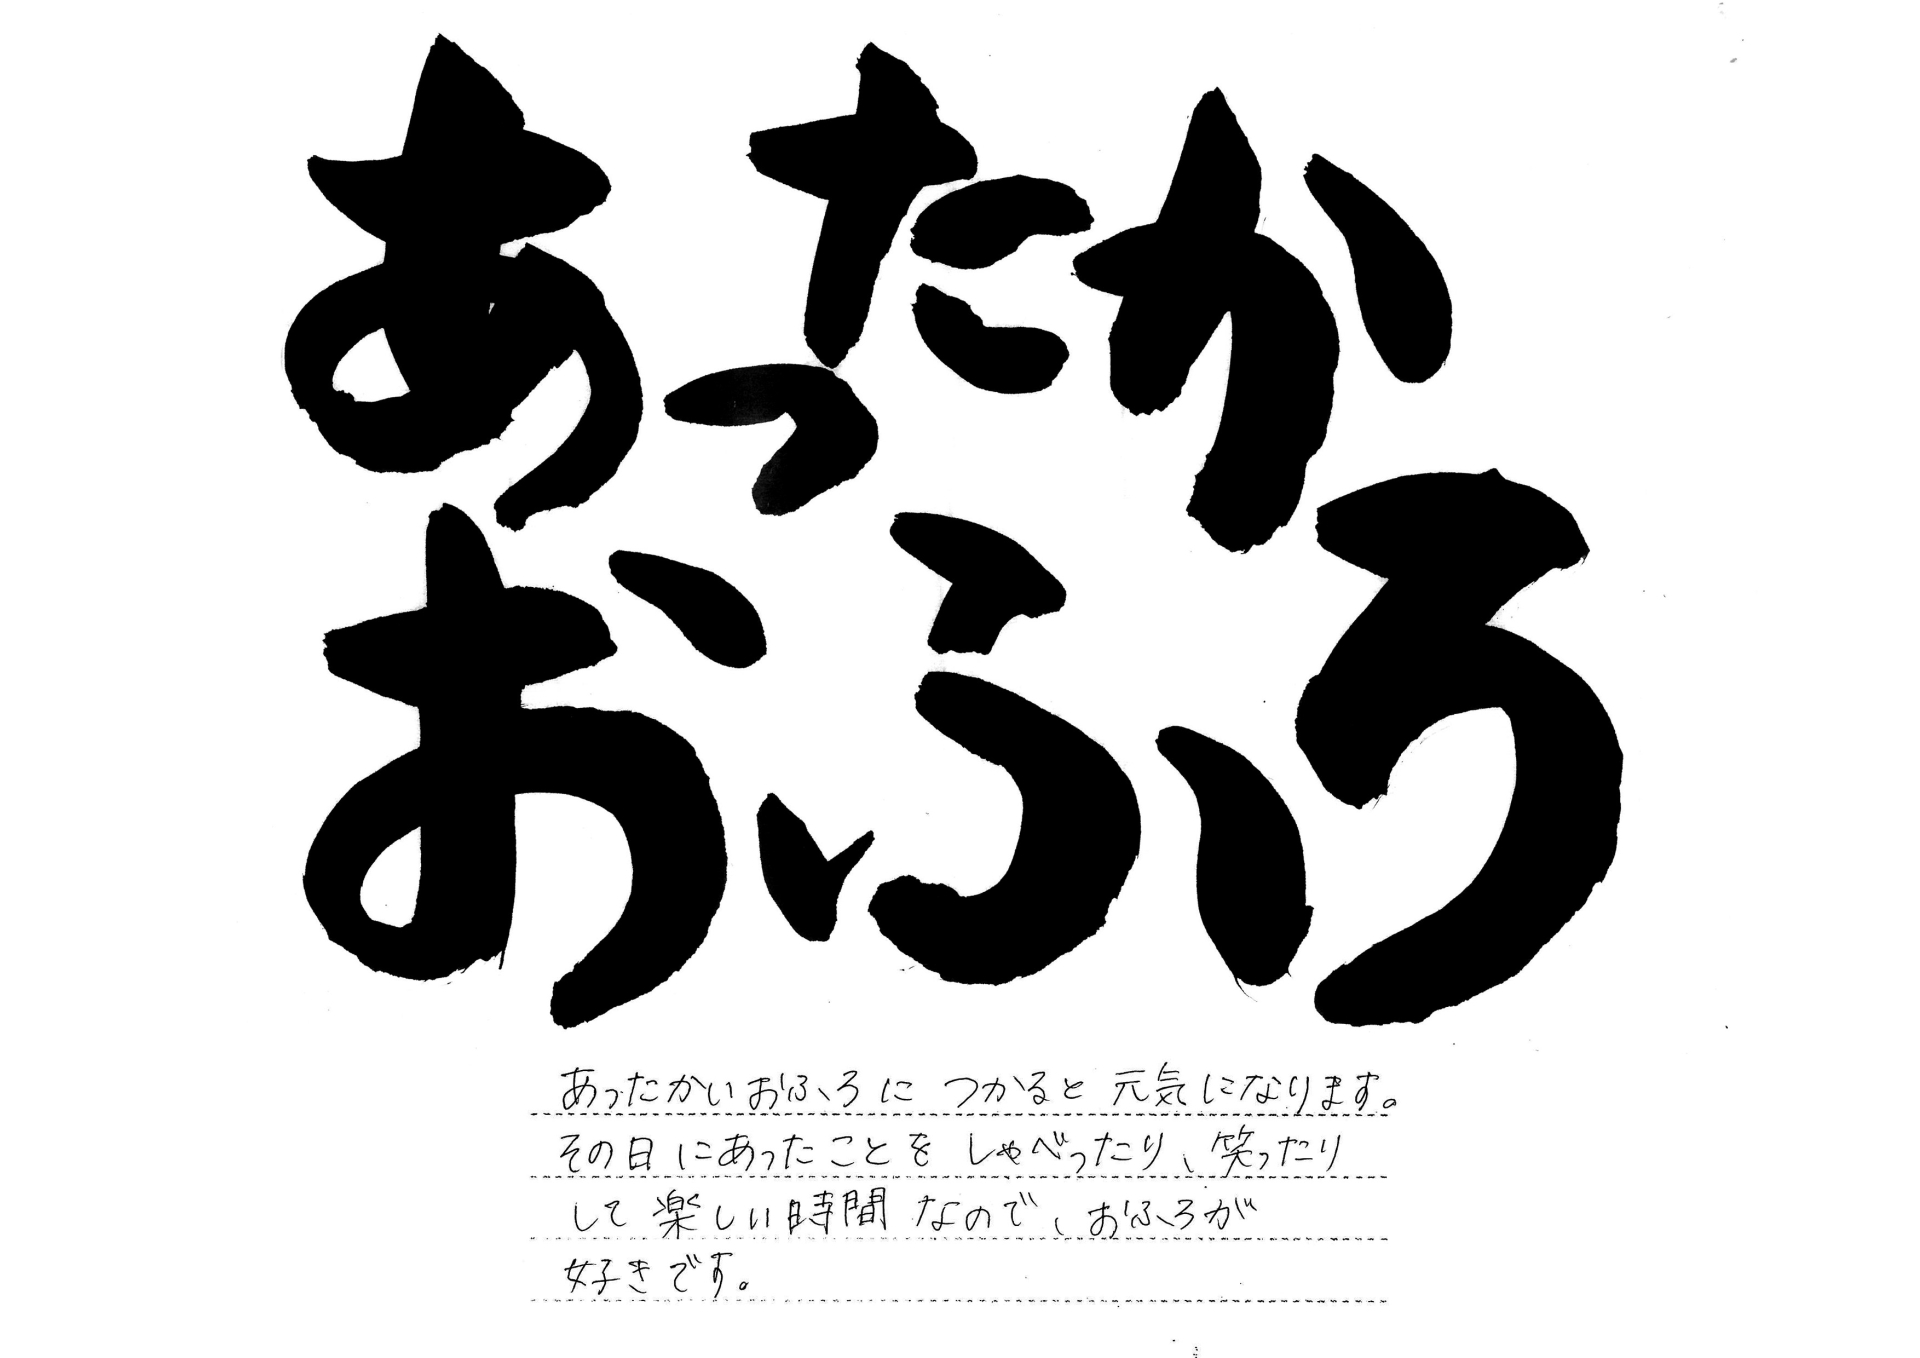 あったか
おふろ
あったかいおふろに つかると 元気になります。
その日にあったことを しゃべったり、笑ったり
して 楽しい時間 なので、おふろが
好きです。